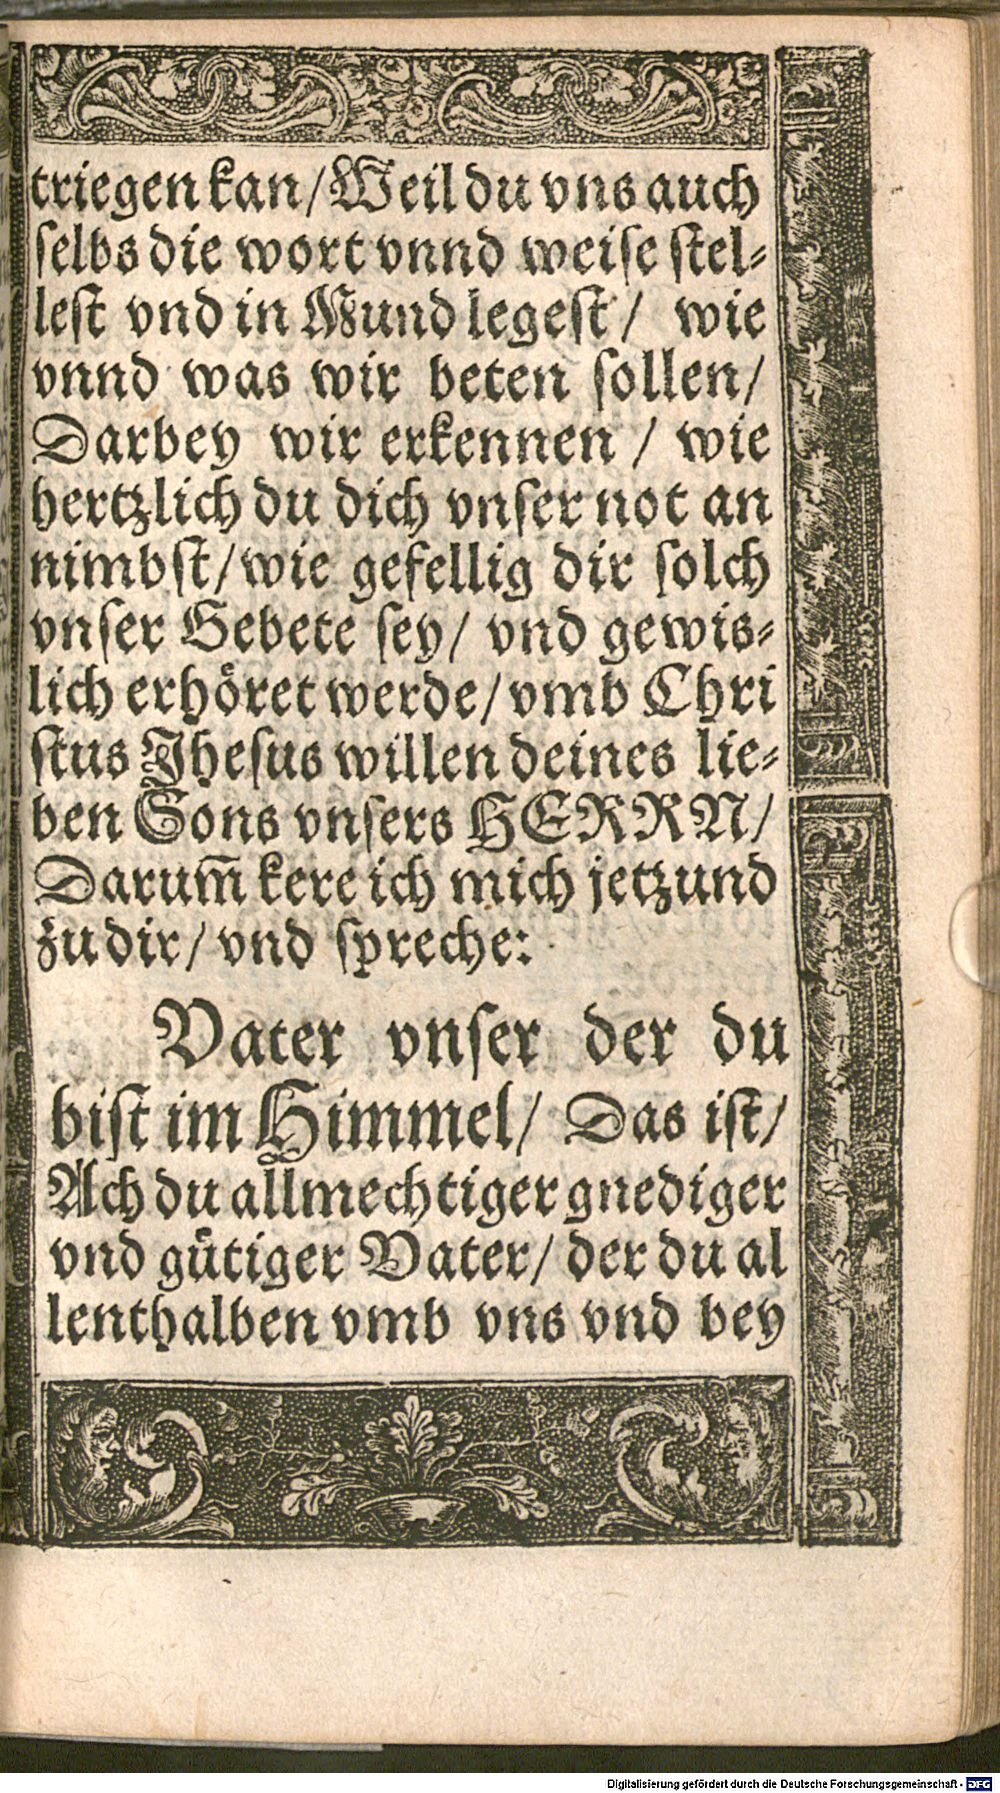 triegen kan/ Weil du vns auch
selbs die wort vnnd weise stel-
lest vnd in Mund legest/ wie
vnnd was wir beten sollen/
Darbey wir erkennen / wie
hertzlich du dich vnser not an
nimbst/ wie gefellig dir solch
vnser Gebete sey/ vnd gewis-
lich erhöret werde/ vmb Chri
stus Jhesus willen deines lie-
ben Sons vnsers HERRN/
Darum̃ kere ich mich jetzund
zu dir/ vnd spreche:
Vater vnser der du
bist im Himmel/ Das ist/
Ach du allmechtiger gnediger
vnd gütiger Vater/ der du al
lenthalben vmb vns vnd bey
Digitalisierung gefördert durch die Deutsche Forschungsgemeinschaft - DFG